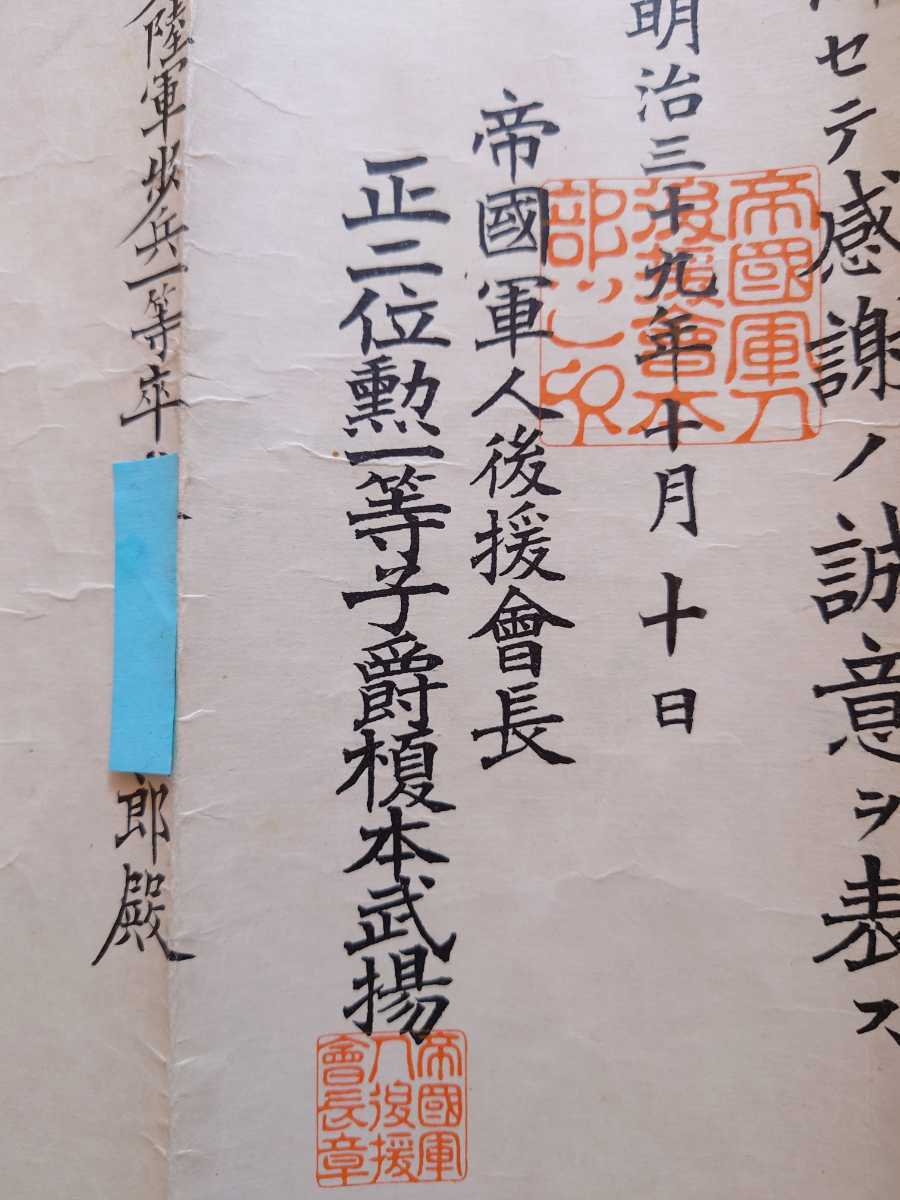 セテ感謝ノ誠意ヲ表ス
明治三十九年十月十日
帝國軍人後援會長
正二位勲一等子爵榎本武揚
陸軍歩兵一等卒
郎殿
帝國軍人
後援會本
部之印
帝國軍
人後援
會長章